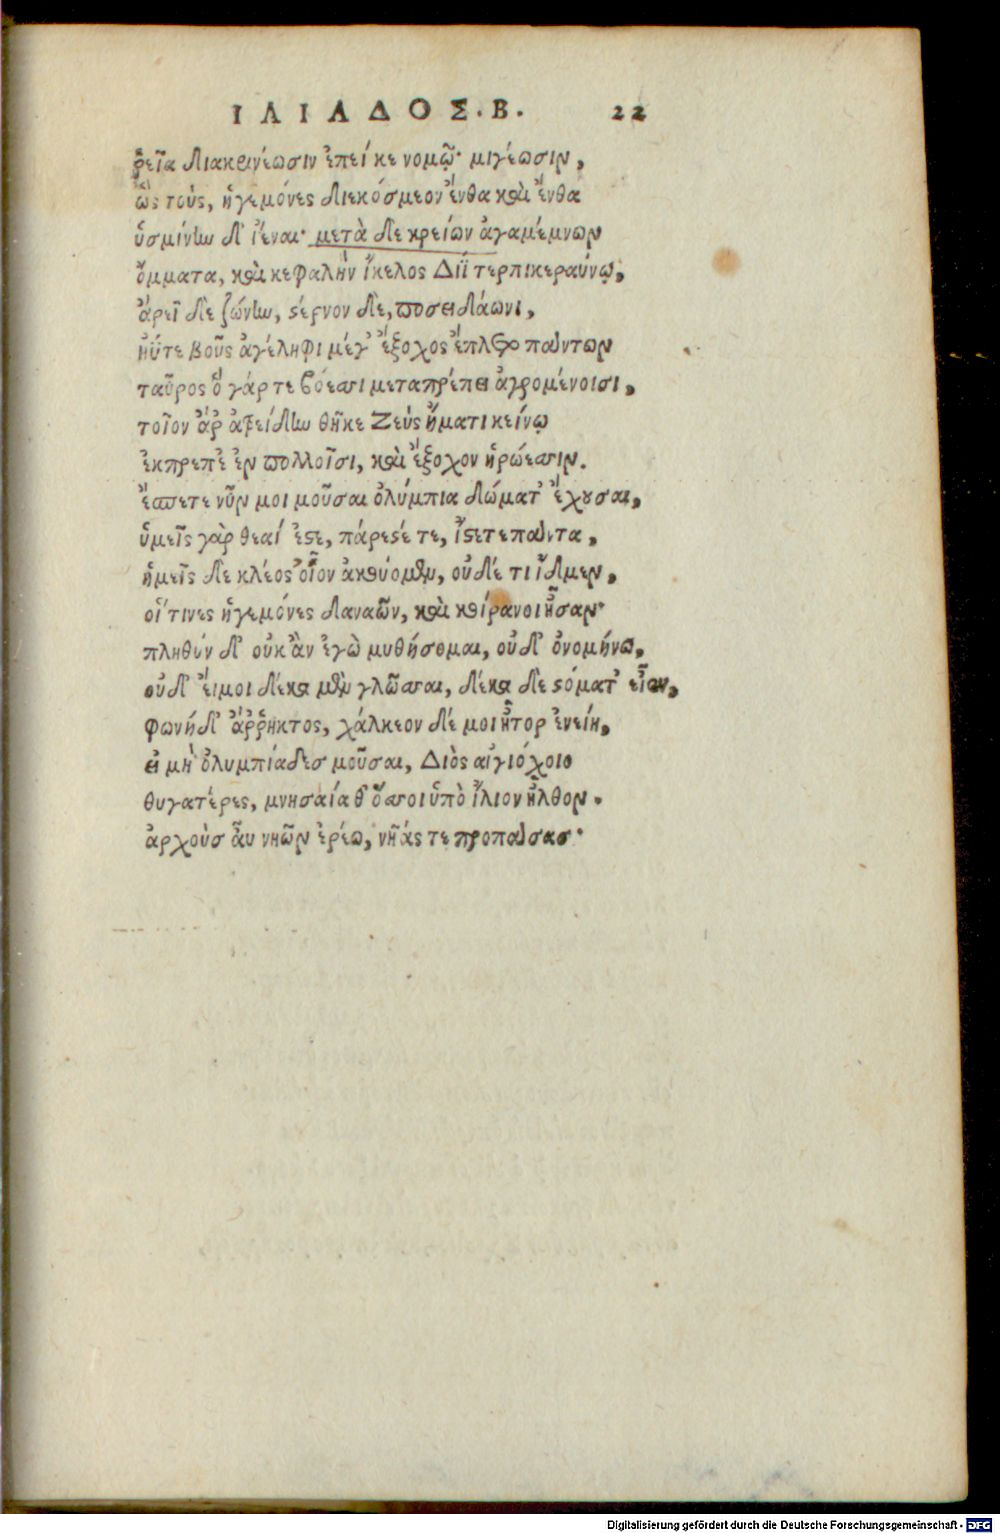 ΙΛΙΑΔΟΣ. Β. 22
ῥεῖα διακρινέωσιν ἐπεί κε νομῷ· μιγέωσιν,
ὣς τοὺς, ἡγεμόνες διεκόσμεον ἔνθα καὶ ἔνθα
ὑσμίνην δ' ἰέναι· μετὰ δὲ κρείων ἀγαμέμνων
ὄμματα, καὶ κεφαλὴν ἴκελος Διῒ τερπικεραύνῳ,
ἄρεϊ δὲ ζώνην, στέρνον δὲ, ποσειδάωνι,
ἠΰτε βοῦς ἀγέληφι μέγ' ἔξοχος ἔπλετο πάντων
ταῦρος ὅ γάρ τε βόεσσι μεταπρέπει ἀγρομένοισι,
τοῖον ἄρ ἀτρείδην θῆκε Ζεὺς ἤματι κείνῳ
ἐκπρεπέ ἐν πολλοῖσι, καὶ ἔξοχον ἡρώεσσιν.
ἔσπετε νῦν μοι μοῦσαι ὀλύμπια δώματ' ἔχουσαι,
ὑμεῖς γὰρ θεαί ἐστε, πάρεστέ τε, ἴστε τε πάντα,
ἡμεῖς δὲ κλέος οἶον ἀκούομεν, οὐδέ τι ἴδμεν,
οἵ τινες ἡγεμόνες δαναῶν, καὶ κοίρανοι ἦσαν·
πληθύν δ' οὐκ ἂν ἐγὼ μυθήσομαι, οὐδ' ὀνομήνω,
οὐδ' εἴ μοι δέκα μὲν γλῶσσαι, δέκα δὲ στόματ' εἶεν,
φωνή δ' ἄῤῥηκτος, χάλκεον δέ μοι ἦτορ ἐνείη,
εἰ μὴ ὀλυμπιάδες μοῦσαι, Διὸς αἰγιόχοιο
θυγατέρες, μνησαίαθ' ὅσσοι ὑπὸ ἴλιον ἦλθον.
ἀρχοὺς ἂυ νηῶν ἐρέω, νῆάς τε προπάσας·
Digitalisierung gefördert durch die Deutsche Forschungsgemeinschaft - DFG